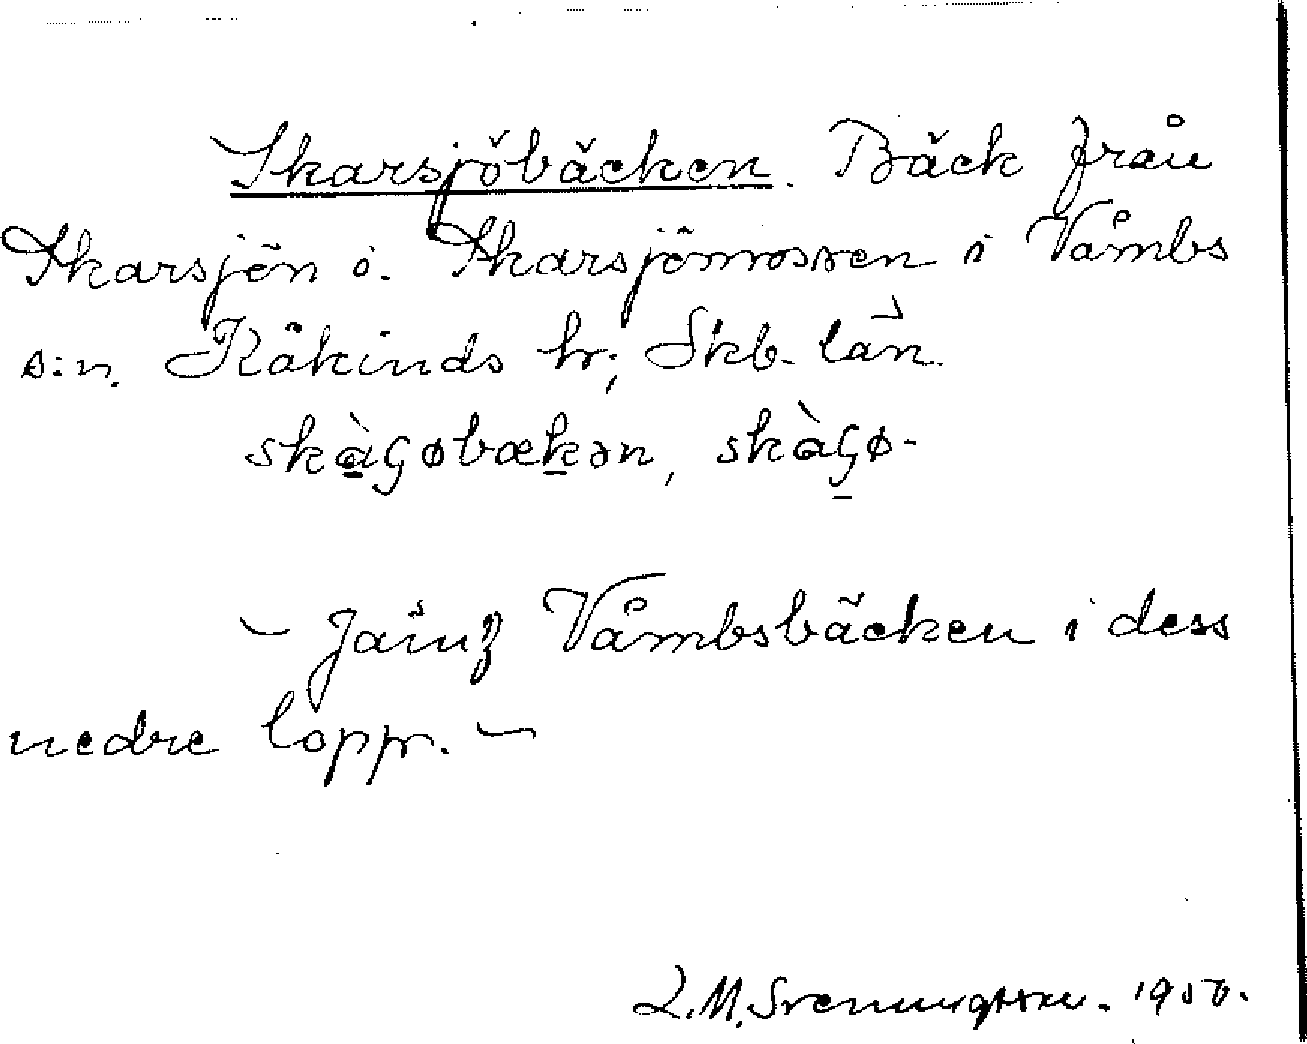 Skarsjöbäcken. Bäck från
Skarsjön o. Skarsjömossen i Våmbs
s:n. Kåkinds hr; Skb. län.
skàɢøbækən, skàɢø-
– Jämf Våmbsbäcken i dess
nedre lopp. –
L.M. Svenungsson. 1950.